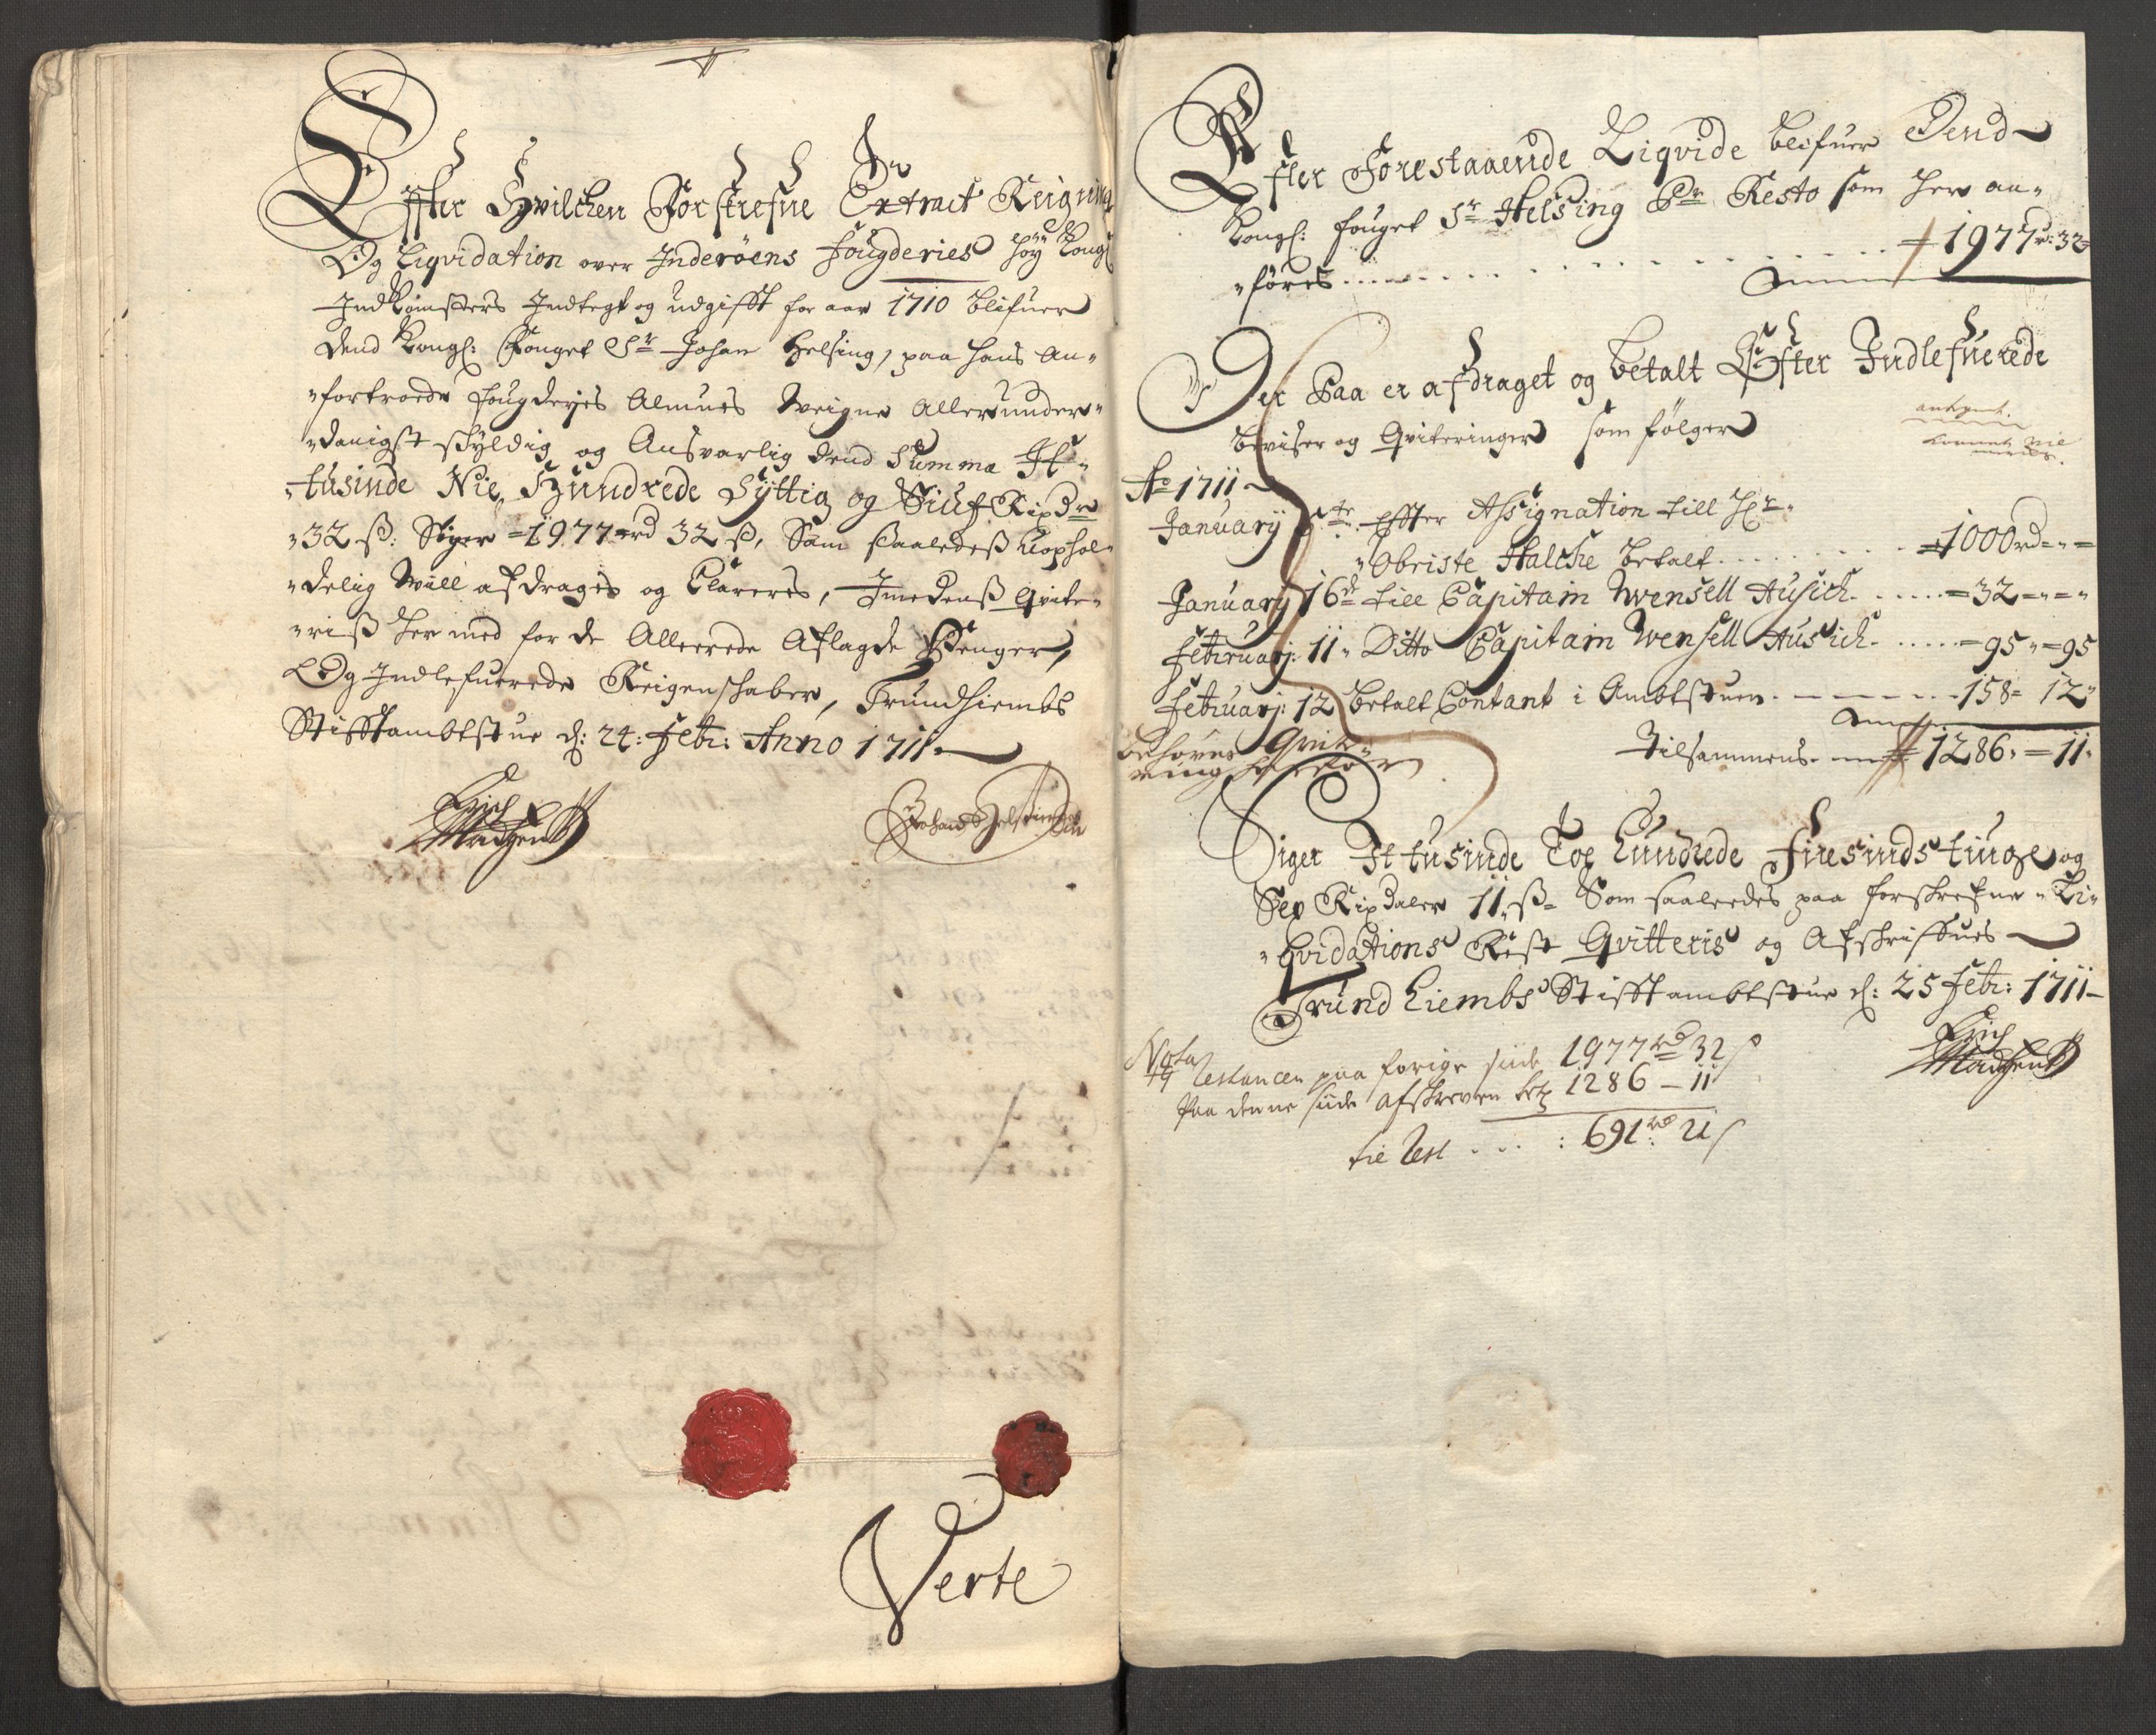 Effter Hvilchen Forskrefne Extract Reigning
Og Liqvidation over Inderøens Fougderies Høy Kongl:
Indkomsters Indtegt og udgifft for aar 1710 blifuer
dend Kongl: Fouget Sr Johan Helsing, paa hans An-
-fortroede fougderjes Almues Weigne Allerunder-
-danigst skyldig og Ansvarlig dend Summa It-
-tusinde Nie Hundrede Syttig og Siuf Rixdr
-32 ß: Siger =1977 rd 32 ß, Som saaledeß uophol-
-delig Will afdrages og Clareres, Imedenß Qvite-
-riß her med for de Allerede Aflagde Penger,
Og Indlefuerede Reigenskaber, Trundhiembs
Stifftambtstue d: 24: Febr: Anno 1711
Erich
Madtzen
Johan Helsing
Verte
Effter Forestaaende Liqvide blifuer Dend
Kongl: fouget Sr Helsing Pr Resto som her an-
-føres = 1977 rd: 32
Der Paa er afdraget og betalt Effter Indlefuerede
beviser og Qviteringer som følger
Ao 1711
January Effter Assignation till Hr
Obriste Halche betalt = 1000 rd = -
January 16de till Capitain Wensell Ausich = 32 = - =
Februarj: 11 Ditto Capitain Wensell Ausich = 95 = 95
Februarj: 12 betalt Contant i Ambtstuen 158 = 12
behøves Qvit-
ring
Tilsammens = 1286 = 11
Siger It tusinde Toe Hundrede Firesinds tiuge og
Sex Rixdaler 11 ß = Som saaledes paa forskrefne Li-
-qvidations Rest Qvitteris og Afskriffues
Trundhiembs Stifftambtstue d: 25 Febr: 1711
Erich
Madtzen
Nota
Restancen paa forige side 1977 rd 32 ß
Paa denne side afskreven 1286 - 11
til Rest : 691 rd 21 ß